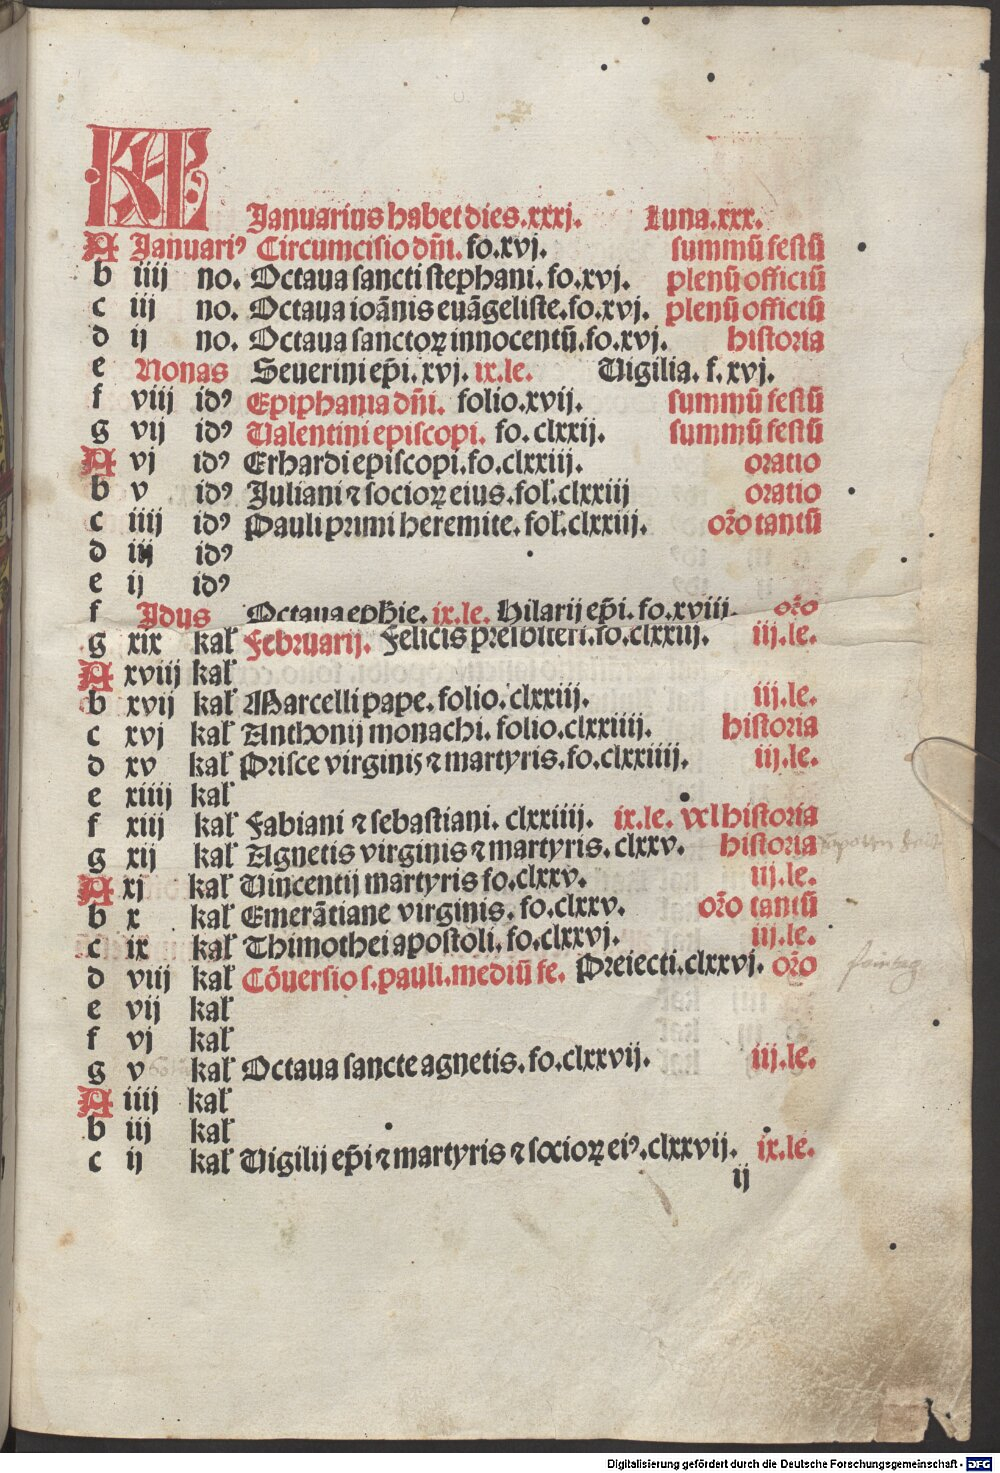 KL
Januarius habet dies.xxxj. Luna.xxx.
A Januariꝰ Circumcisio dñi. fo.xvj. summũ festũ
b iiij no. Octaua sancti stephani. fo.xvj. plenũ officiũ
c iij no. Octaua ioãnis euãgeliste.fo.xvj. plenũ officiũ
d ij no. Octaua sanctoꝝ innocentũ.fo.xvj. historia
e Nonas Seuerini ep̃i.xvj. ix.le. Uigilia. f.xvj.
f viij idꝰ Epiphania dñi. folio.xvij. summũ festũ
g vij idꝰ Ualentini episcopi. fo. clxxij. summũ festũ
A vj idꝰ Erhardi episcopi.fo.clxxiij. oratio
b v idꝰ Juliani ⁊ socioꝝ eius.fol̃.clxxiij oratio
c iiij idꝰ Pauli primi heremite. fol̃.clxxiij. or̃o tantũ
d iij idꝰ
e ij idꝰ
f Idus Octaua ephie. ix.le. Hilarij ep̃i. fo.xviij. or̃o
g xix kal̃ Februarij. Felicis presbiteri.fo.clxxiij. iij.le.
A xviij kal̃
b xvij kal̃ Marcelli pape. folio. clxxiij. iij.le.
c xvj kal̃ Anthonij monachi. folio.clxxiiij. historia
d xv kal̃ Prisce virginis ⁊ martyris.fo.clxxiiij. iij.le.
e xiiij kal̃
f xiij kal̃ Fabiani ⁊ sebastiani. clxxiiij. ix.le. vel historia
g xij kal̃ Agnetis virginis ⁊ martyris. clxxv. historia
A xj kal̃ Uincentij martyris fo.clxxv. iij.le.
b x kal̃ Emerãtiane virginis. fo.clxxv. or̃o tantũ
c ix kal̃ Thimothei apostoli. fo.clxxvj. iij.le.
d viij kal̃ Cõuersio s. pauli.mediũ fe. Preiecti.clxxvj. or̃o
e vij kal̃
f vj kal̃
g v kal̃ Octaua sancte agnetis. fo.clxxvij. iij.le.
A iiij kal̃
b iij kal̃
c ij kal̃ Uigilij ep̃i ⁊ martyris ⁊ socioꝝ eiꝰ.clxxvij. ix.le.
ij
Digitalisierung gefördert durch die Deutsche Forschungsgemeinschaft - DFG